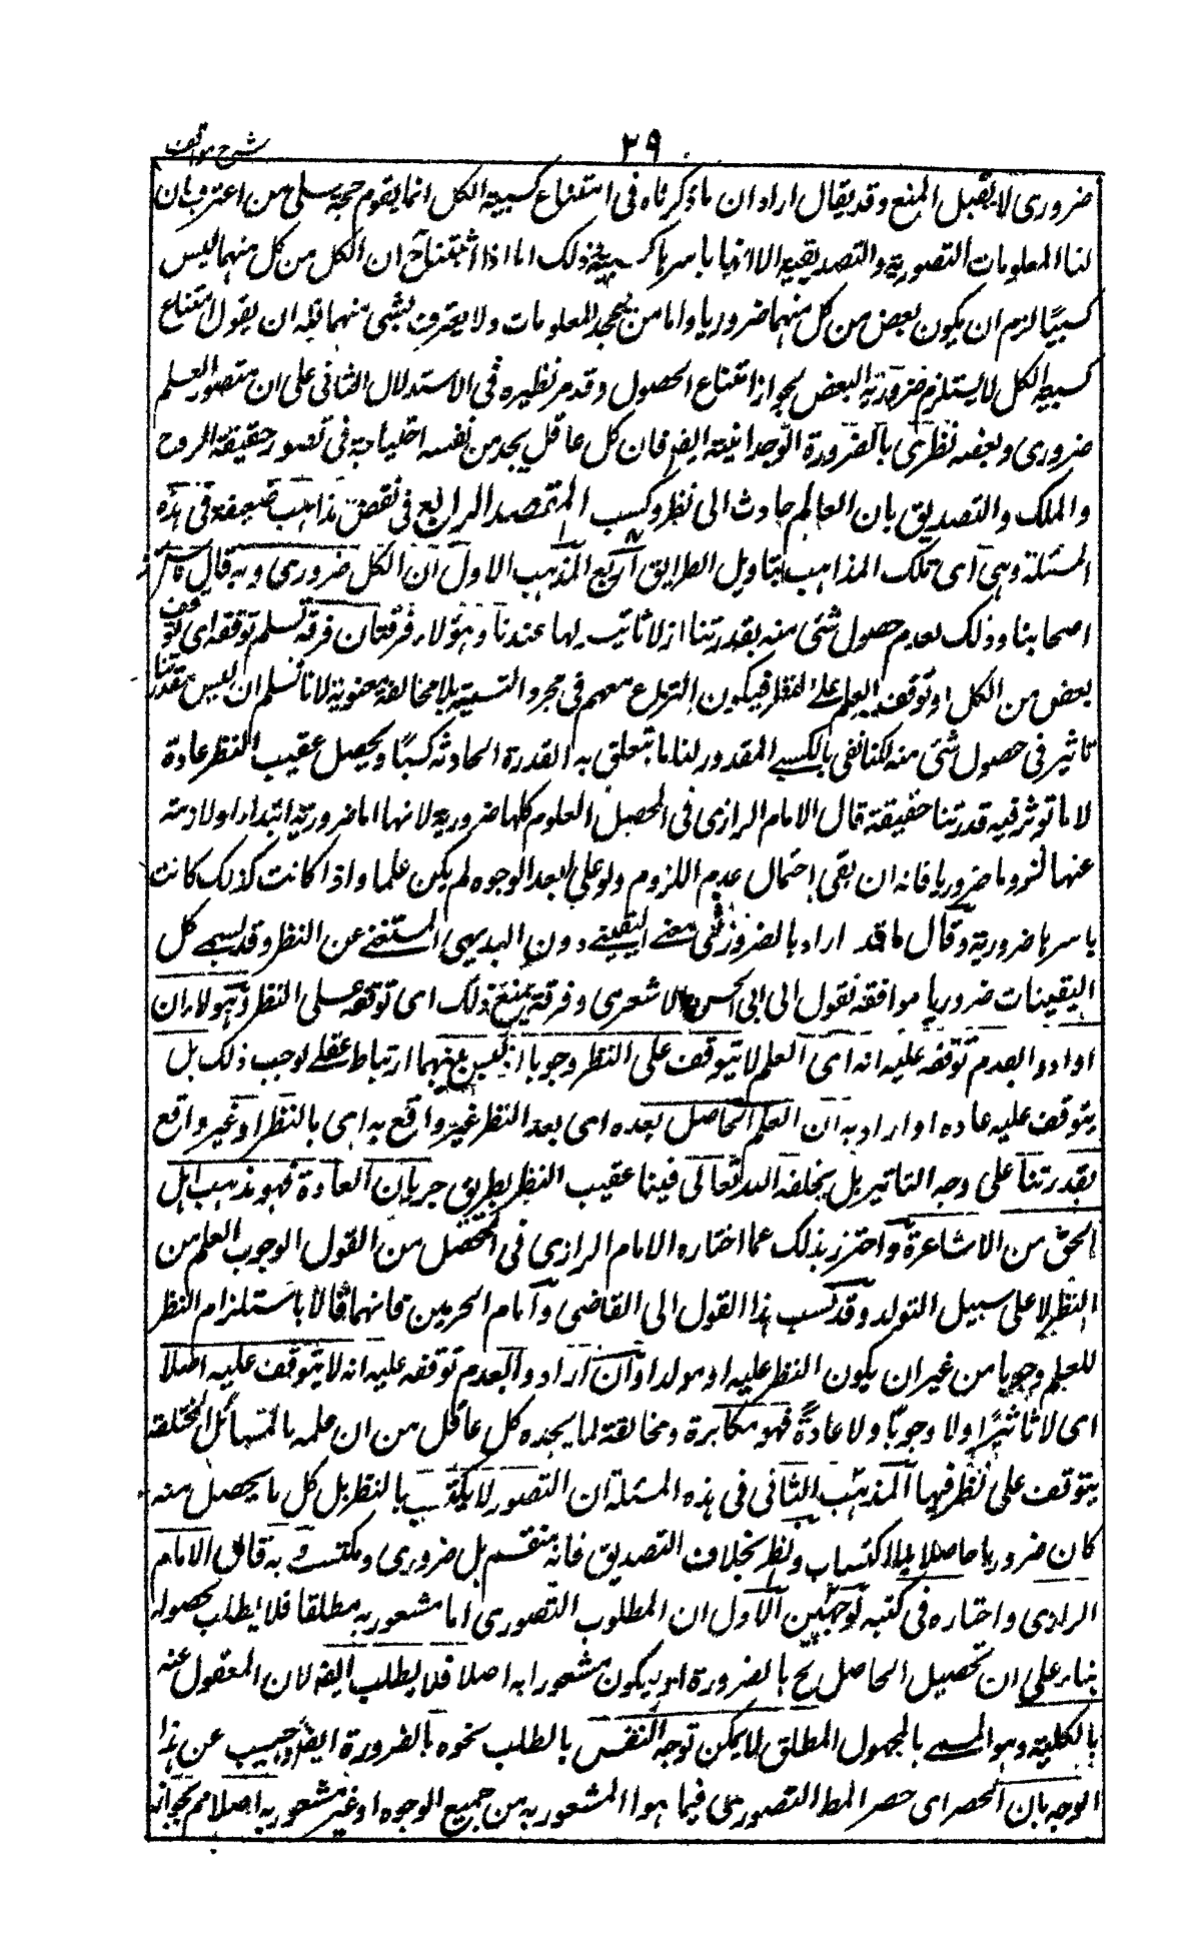 شرح مواقف
٣٩
ضروری لا یقبل المنع وقد یقال اراد ان ما ذکرناه فی امتناع کسبیة الکل انما یقوم حجة علی من اعترف بان
لنا المعلومات التصوریة والتصدیقیة الا انها باسرها کسبیة ذلک اما اذا اثبتنا ان الکل من کل منهما لیس
کسبیًا لزم ان یکون بعض من کل منهما ضروریا واما من یجحد المعلومات ولا یعترف بشئ منهما فله ان یقول امتناع
کسبیة الکل لا یستلزم ضروریة البعض لجواز امتناع الحصول وقد مر نظیره فی الاستدلال الثانی علی ان تصور العلم
ضروری وبعضه نظری بالضرورة الوجدانیة ایضا فان کل عاقل یجد من نفسه احتیاجه فی تصور حقیقة الروح
والملک والتصدیق بان العالم حادث الی نظر وکسب المقصد الرابع فی نقض مذاهب ضعیفة فی هذه
المسئلة وهی ای تلک المذاهب بتاویل الطرایق اربع المذهب الاول ان الکل ضروری وبه قال ناس من
اصحابنا وذلک لعدم حصول شئی منه بقدرتنا اذ لا تاثیر لها عندنا وهؤلاء فرقتان فرقة تسلم توقفه ای توقف
بعض من الکل او توقف العلم علی النظر فیکون النزاع معهم فی مجرد التسمیة بلا مخالفة معنویة لانا نسلم ان لیس لقدرتنا
تاثیر فی حصول شئی منه لکنا نفی بالکسبی المقدور لنا ما تتعلق به القدرة الحادثة کسبًا ویحصل عقیب النظر عادة
لا ما توثر فیه قدرتنا حقیقة قال الامام الرازی فی المحصل العلوم کلها ضروریة لانها اما ضروریة ابتداء او لازمة
عنها لزوما ضروریا فانه ان بقی احتمال عدم اللزوم ولو علی ابعد الوجوه لم یکن علما واذا کانت کذلک کانت
باسرها ضروریة وقال ناقده اراد بالضروری معنی الیقینی دون البدیهی المستغنی عن النظر وقد یسمی کل
الیقینات ضروریا موافقة لقول ابی الحسن الاشعری وفرقة تمنع ذلک ای توقفه علی النظر وهولاء ان
ارادوا بعدم توقفه علیه انه ای العلم لا یتوقف علی النظر وجوبا اذ لیس بینهما ارتباط عقلی یوجب ذلک بل
یتوقف علیه عادة او اراد به ان العلم الحاصل بعده ای بعد النظر غیر واقع به ای بالنظر او غیر واقع
بقدرتنا علی وجه التاثیر بل بخلقه الله تعالی فینا عقیب النظر بطریق جریان العادة فهو مذهب اهل
الحق من الاشاعرة واحترز بذلک عما اختاره الامام الرازی فی المحصل من القول الوجوب العلم من
النظر لا علی سبیل التولد وقد نسب هذا القول الی القاضی وامام الحرمین فانهما قالا باستلزام النظر
للعلم وجوبا من غیر ان یکون النظر علیه او مولدا وان ارادوا بعدم توقفه علیه انه لا یتوقف علیه اصلا
ای لا تاثیرًا ولا وجوبًا ولا عادةً فهو مکابرة ومخالفة لما یجده کل عاقل من ان علمه بالمسائل المختلفة
یتوقف علی نظر فیها المذهب الثانی فی هذه المسئلة ان التصور لا یکتسب بالنظر بل کل ما یحصل منه
کان ضروریا حاصلا بلا اکتساب ونظر بخلاف التصدیق فانه منقسم بل ضروری ومکتسب وبه قال الامام
الرازی واختاره فی کتبه لوجهین الاول ان المطلوب التصوری اما مشعور به مطلقا فلا یطلب حصوله
بناء علی ان تحصیل الحاصل مح بالضرورة او یکون مشعورا به اصلا فلا یطلب ایضا لان المعقول عنه
بالکلیة وهو المسمی بالمجهول المطلق لا یمکن توجه النفس بالطلب نحوه بالضرورة ایضا واجیب عن هذا
الوجه بان الحصر ای حصر المط التصوری فیما هو المشعور به من جمیع الوجوه او غیر مشعور به اصلا مم لجواز